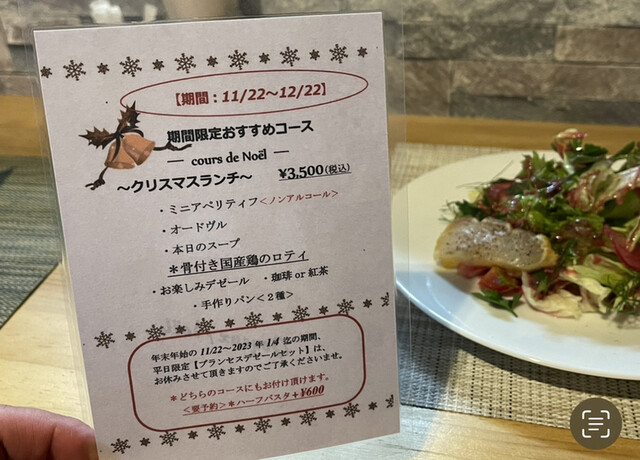 【期間：11/22～12/22】
期間限定おすすめコース
― cours de Noël ―
～クリスマスランチ～ ¥3,500(税込)
・ミニアペリティフ<ノンアルコール>
・オードヴル
・本日のスープ
＊骨付き国産鶏のロティ
・お楽しみデゼール ・珈琲 or 紅茶
・手作りパン<２種>
年末年始の 11/22～2023 年 1/4 迄の期間、
平日限定【プランセスデゼールセット】は、
お休みさせて頂きますのでご了承くださいませ。
＊どちらのコースにもお付け頂けます。
<要予約>＊ハーフパスタ＋¥600